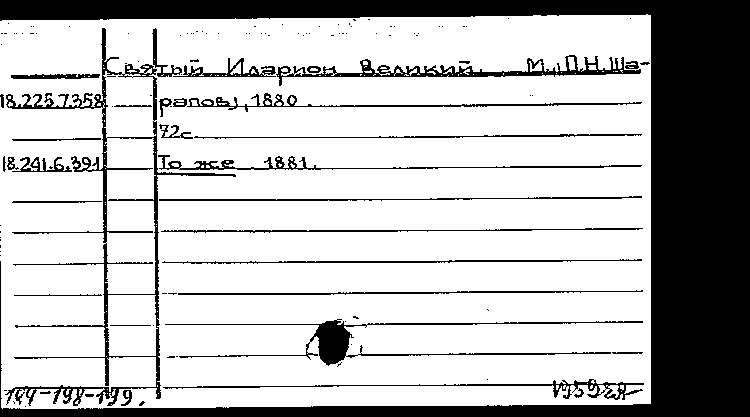 Святый Иларион Великий. М., П.Н. Ша-
18.225.7.358 рапов), 1880.
72с.
18.241.6.391 То же 1881.
184-198-199.